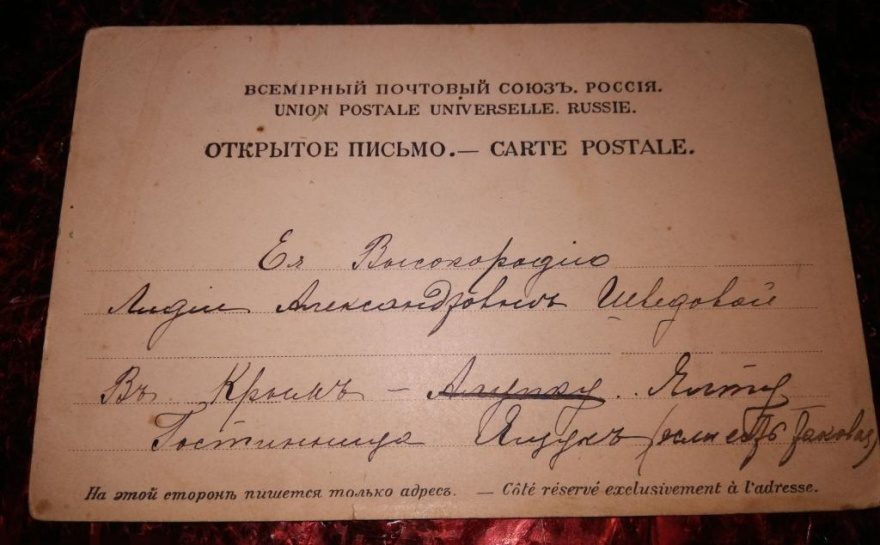 ВСЕМІРНЫЙ ПОЧТОВЫЙ СОЮЗЪ. РОССІЯ.
UNION POSTALE UNIVERSELLE. RUSSIE.
ОТКРЫТОЕ ПИСЬМО.— CARTE POSTALE.
Ея Высокородію
Лидіи Александровнѣ Шведовой
Въ Крымъ – Алупку. Ялту
Гостинница (если есть таковая)
На этой сторонѣ пишется только адресъ. — Côté réservé exclusivement à l'adresse.